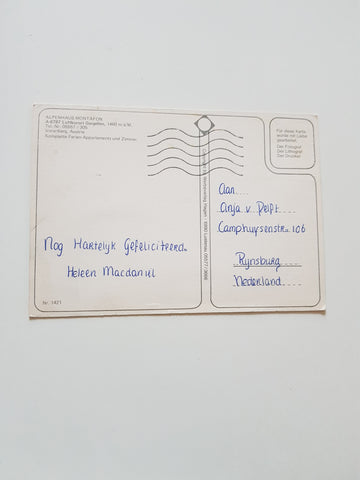 ALPENHAUS MONTAFON
A-6787 Luftkurort Gargellen, 1460 m ü.M.
Tel. Nr. 05557 / 305
Vorarlberg, Austria
Komplette Ferien-Appartements und Zimmer.
Nog Hartelyk Gefeliciteerd.
Heleen Macdaniel
Nr. 1421
Für diese Karte
wurde mit Liebe
gearbeitet:
Der Fotograf
Der Lithograf
Der Drucker
Aan....
Anja v Delft....
Camphuysenstr. 106
Rynsburg....
Nederland....